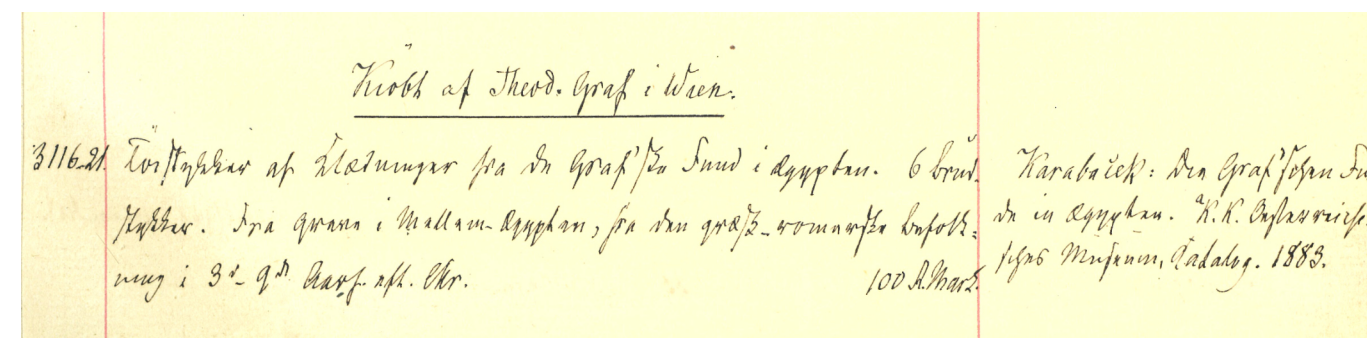 Kiöbt af Theod. Graf i Wien.
3116-21. Töistykker af Klædninger fra de Graf'ske Fund i Ægypten. 6 Brud-
stykker. Fra Grave i Mellem-Ægypten, fra den græsk-romerske Befolk-
ning i 3die-9de Aarh. eft. Chr. 100 R.Mark.
Karabaček: Die Graf'schen Fu
de in Ægypten. K. K. Oesterreichi
sches Museum, Katalog. 1883.